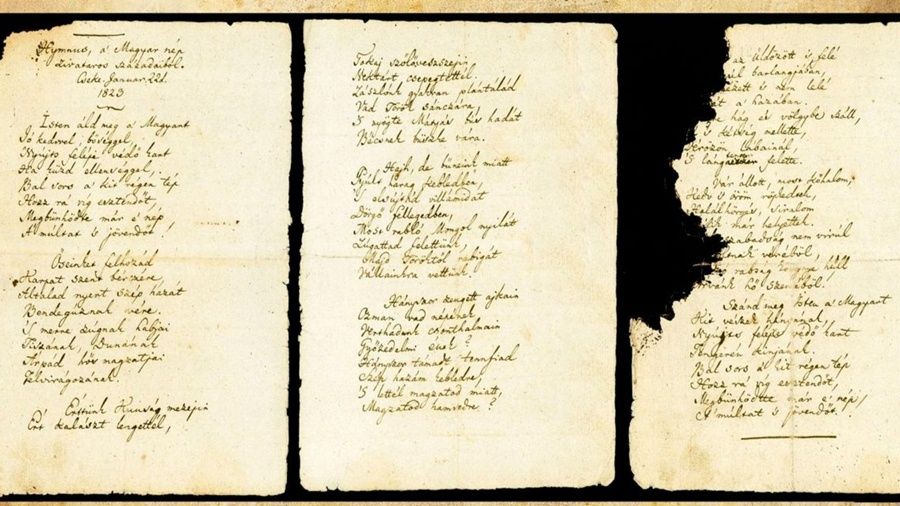 Hymnus, a' Magyar nép
zivataros századaiból.
Cseke. Januar. 22d.
1823
Isten áld meg a' Magyart
Jó kedvvel, bőséggel,
Nyújts feléje védő kart
Ha küzd ellenséggel,
Bal sors a' kit régen tép
Hozz rá víg esztendőt,
Megbünhődte már e' nép
A' múltat 's jövendőt!
Őseinket felhozád
Karpat szent bérczére,
Általad nyert szép hazát
Bendegúznak vére.
'S merre zúgnak habjai
Tiszának, Dunának
Árpád hős magzatjai
Felvirágozának.
Értünk Kunság mezejin
Ért kalászt lengettél,
Tokaj szőlővesszejin
Nektárt csepegtettél.
Zászlónk gyakran plántálád
Vad Török sánczára,
'S nyögte Mátyás bús hadát
Bécsnek büszke vára.
Hajh, de bűneink miatt
Gyúlt harag kebledben,
'S elsujtád villámidat
Dörgő fellegedben,
Most rabló Mongol nyilát
Zúgattad felettünk,
Majd Töröktől rabigát
Vállainkra vettünk.
Hányszor zengett ajkain
Ozman vad népének
Vert hadunk csonthalmain
Győzedelmi ének!
Hányszor támadt tenn fiad
Szép hazám kebledre,
'S lettél magzatod miatt,
Magzatod hamvedre?
az üldözött 's felé
barlangjában,
nézett 's nem lelé
a' hazában.
hág és völgybe száll,
's kétség mellette,
Vérözön lábainál,
'S láng felette.
Vár állott, most kőhalom,
Kedv 's öröm röpkedtek,
Halálhörgés, siralom
már helyettek.
szabadság nem virúl
véréből,
rabság könnye hull
hő szeméből.
Szánd meg Isten a' Magyart
Kit vészek hányának,
Nyújts feléje védő kart
Tengerén kínjának.
Bal sors a' kit régen tép
Hozz rá víg esztendőt,
Megbünhődte már e' nép
A' múltat 's jövendőt.